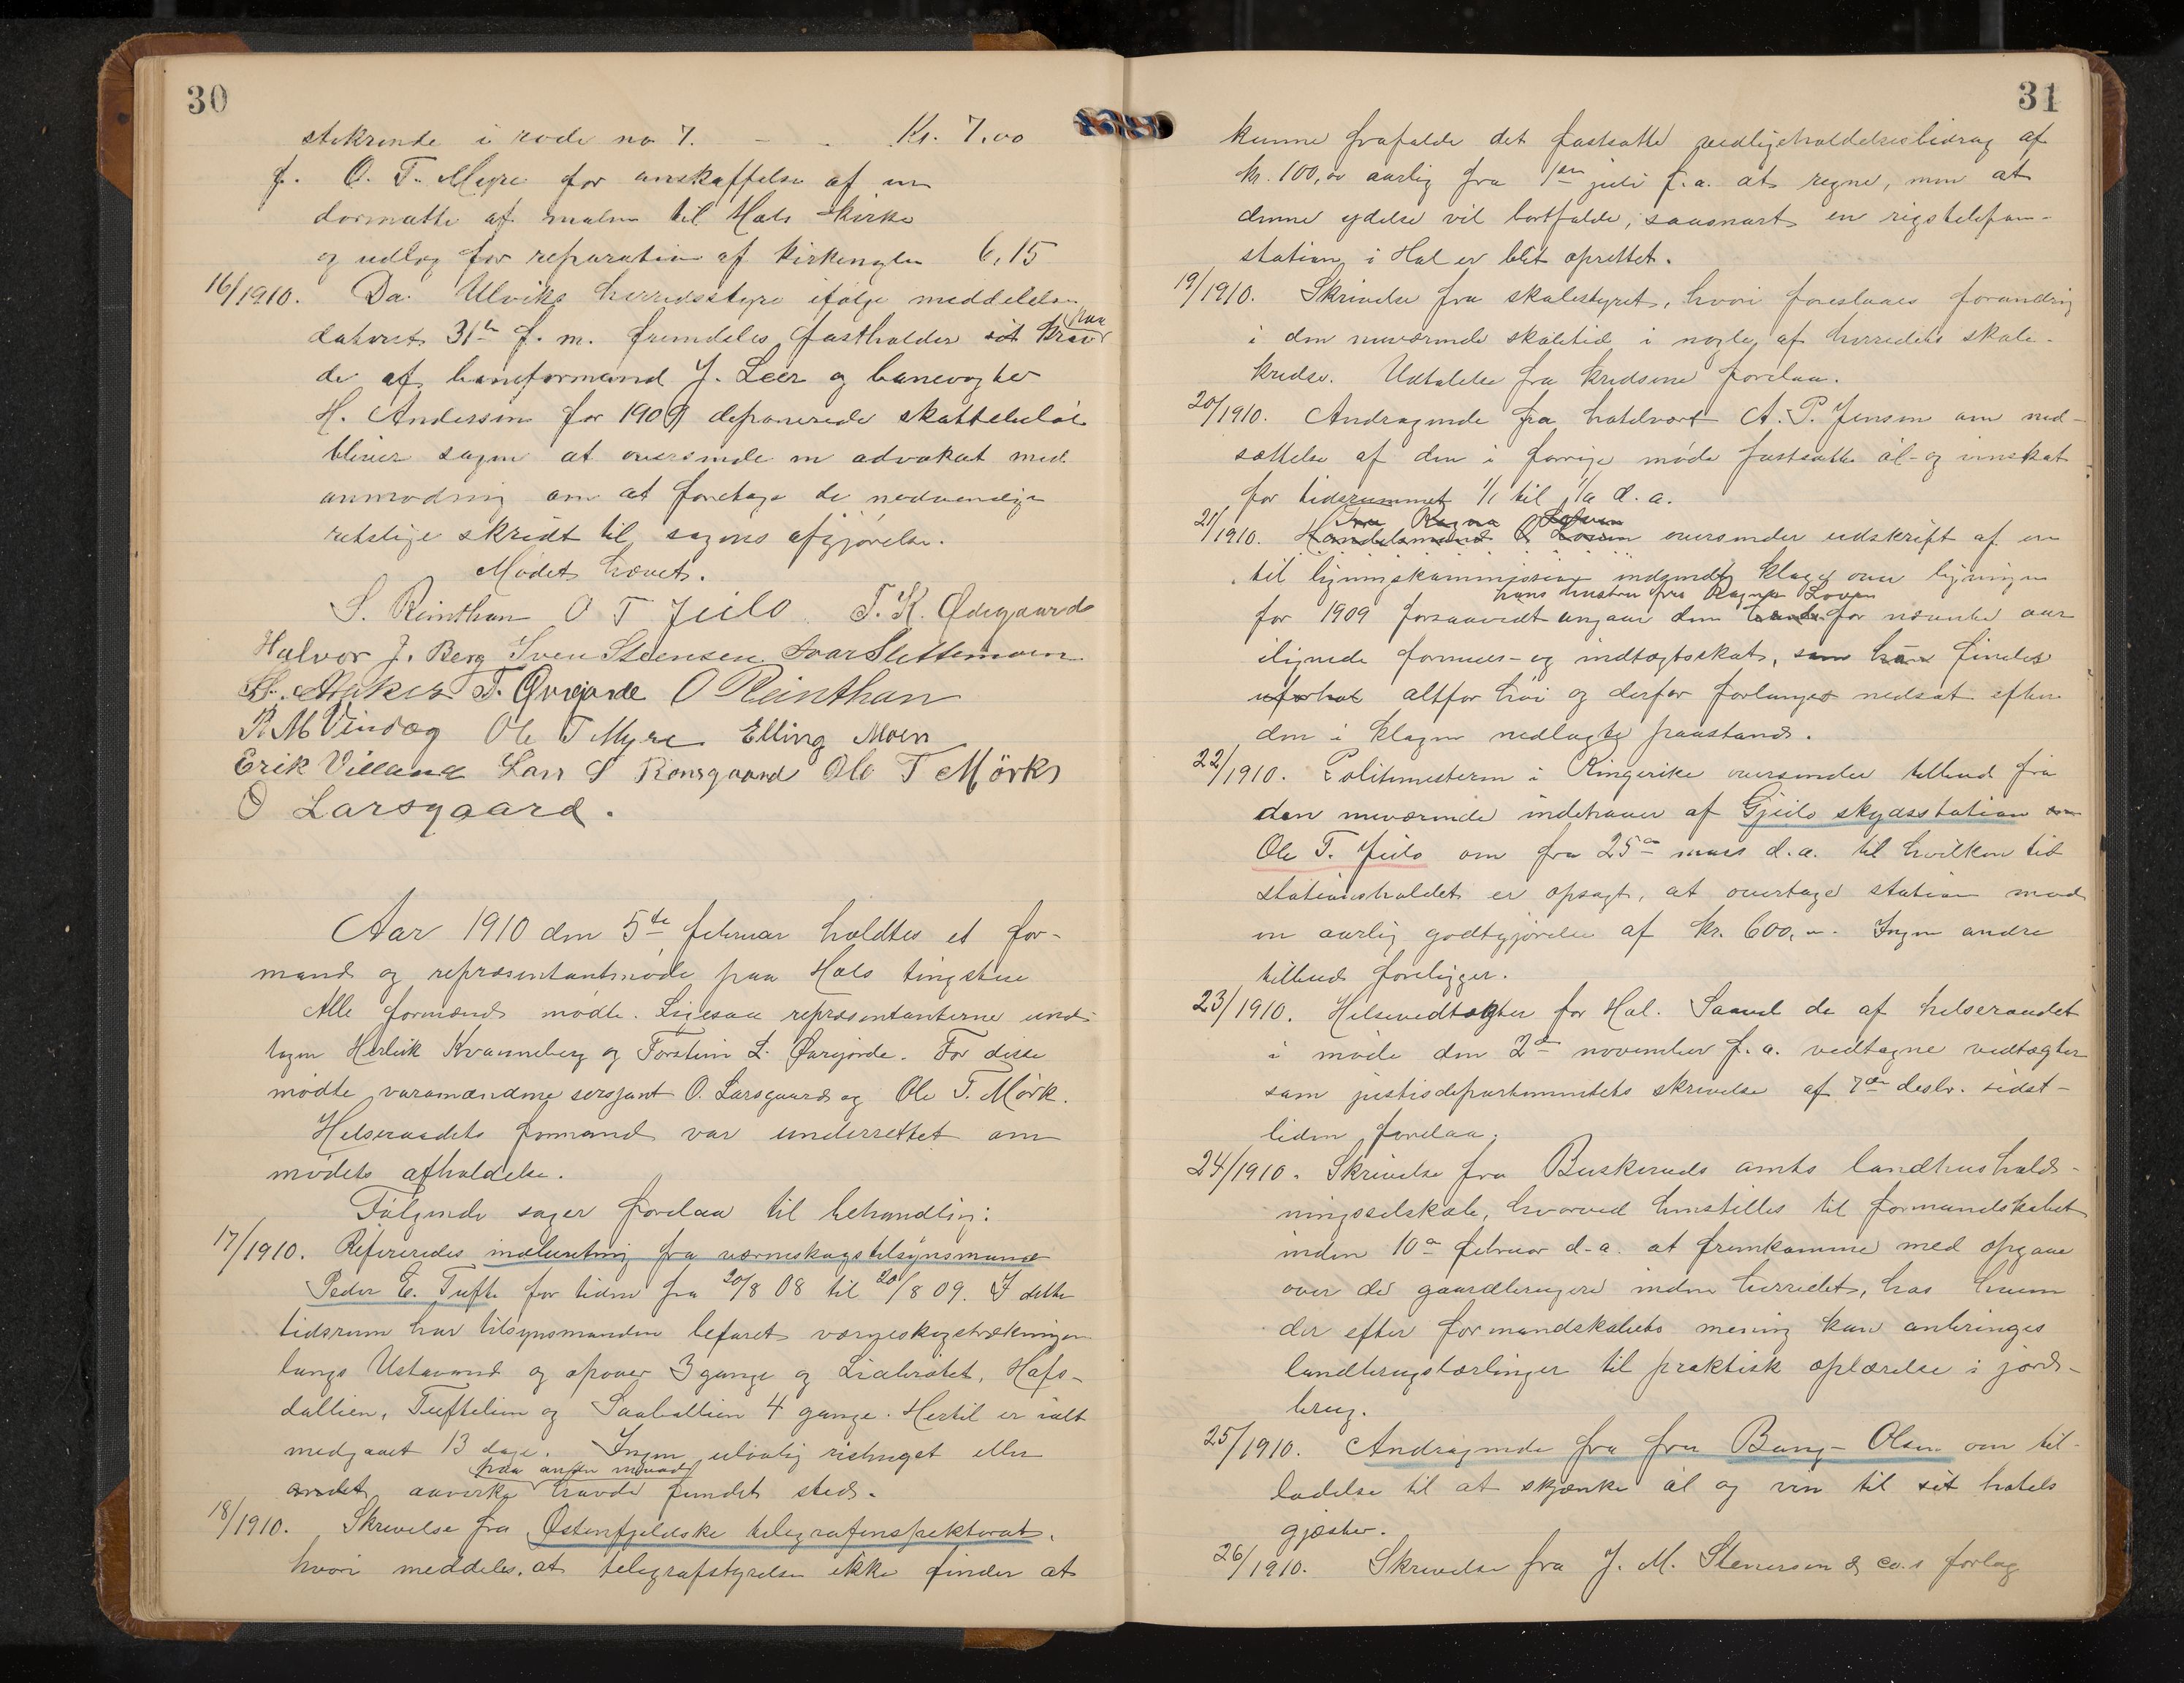 30
stikrende i rode no 7. - - Kr. 7,00
f. O. T. Myre for anskaffelse af en
dørmatte af malm til Hols kirke
og udlæg for reparation af kirkenøglen 6,15
16/1910. Da Ulviks herredsstyre ifølge meddelelse
dateret 31te f. m. fremdeles fastholder sit krav paa
de af baneformand J. Leer og banevogter
H. Andersen for 1909 deponerede skattebeløb
bliver sagen at oversende en advokat med
anmodning om at foretage de nødvendige
retslige skridt til sagens afgjørelse.
Mødet hævet.
S. Reinthan O T Jeilo T. K. Ødegaard
Halvor J. Berg Sven Steensen Ivar Slettemoen
T. Qvrejorde O Reinthan
Ole T Myre Elling Moen
Erik Villand Lars S Rønsgaard Ole T Mörk
O Larsgaard.
Aar 1910 den 5te februar holdtes et for-
mands og repræsentantmøde paa Hols tingstue
Alle formænd mødte. Ligesaa repræsentanterne und-
tagen Herleik Kvanneberg og Torstein L. Qvrejorde. For disse
mødte varamændene sersjant O. Larsgaard og Ole T. Mørk.
Helseraadets formand var underrettet om
mødets afholdelse.
Følgende sager forelaa til behandling:
17/1910. Refereredes indberetning fra værneskogstilsynsmand
Peder E. Tufte for tiden fra 20/8 08 til 20/8 09. I dette
tidsrum har tilsynsmanden befaret værneskogstrækningen
langs Ustavand og opover 3 gange og Liabrøtet, Hafs-
dallien, Tuftelien og Saaballien 4 gange. Hertil er ialt
medgaaet 13 dage. Ingen ulovlig rishuget eller
paa anden maade
andet aavirke havde fundet sted.
18/1910. Skrivelse fra Østenfjeldske telegrafinspektorat,
hvori meddeles, at telegrafstyrelsen ikke finder at
31
kunne frafalde det fastsatte vedligeholdelsesbidrag af
kr. 100,00 aarlig fra 1ste juli f.a. at regne, men at
denne ydelse vil bortfalde, saasnart en rigstelefon-
station i Hol er blit oprettet.
19/1910. Skrivelse fra skolestyret, hvori foreslaaes forandring
i den nuværende skoletid i nogle af herredets skole-
kredse. Udtalelse fra kredsene forelaa.
20/1910. Andragende fra hotelvært A. P. Jensen om ned-
sættelse af den i forrige møde fastsatte øl- og vinskat
for tidsrummet 1/1 til 1/4 d. a.
Fru Ragna Loven
21/1910. Handelsmand O Loven oversender udskrift af en
til ligningskommissionen indsendt klage over ligningen
hans hustru fru Ragna Loven
for 1909 forsaavidt angaar den for nævnte aar
ilignede formues- og indtægtsskat, som han findes
altfor høi og derfor forlanges nedsat efter
den i klagen nedlagte paastand.
22/1910. Politimesteren i Ringerike oversender tilbud fra
den nuværende indehaver af Gjeilo skydsstation
Ole T. Jeilo om fra 25de mars d.a. til hvilken tid
stationsholdet er opsagt, at overtage station mod
en aarlig godtgjørelse af kr. 600,00. Ingen andre
tilbud foreligger.
23/1910. Helsevedtægter for Hol. Saavel de af helseraadet
i møde den 2de november f. a. vedtagne vedtægter
som justisdepartementets skrivelse af 7de desbr. sidst-
liden forelaa.
24/1910. Skrivelse fra Buskeruds amts landhushold-
ningsselskab, hvorved henstilles til formandskabet
inden 10de februar d.a. at fremkomme med opgave
over de gaardbrugere inden herredet, hos hvem
der efter formandskabets mening kan anbringes
landbrugslærlinger til praktisk oplærelse i jord-
brug.
25/1910. Andragende fra fru Bang-Olsen om til-
ladelse til at skjænke øl og vin til sit hotels
gjæster.
26/1910. Skrivelse fra J. M. Stenersen & co.s forlag